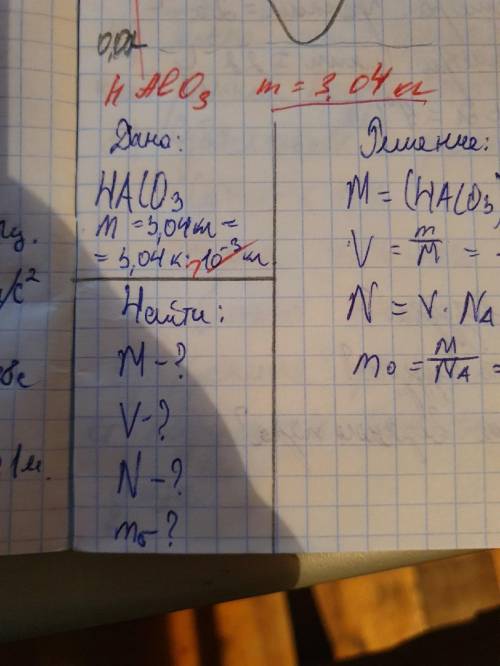 0,01
HAlO3 m = 3,04 кг
Дано:
HAlO3
m = 3,04 кг =
= 3,04 к · 10⁻³ кг
Найти:
M - ?
V - ?
N - ?
m₀ - ?
Решение:
M = (HAlO3)
V = m/M =
N = V · NA
m₀ = M/NA =
/c²
1м.